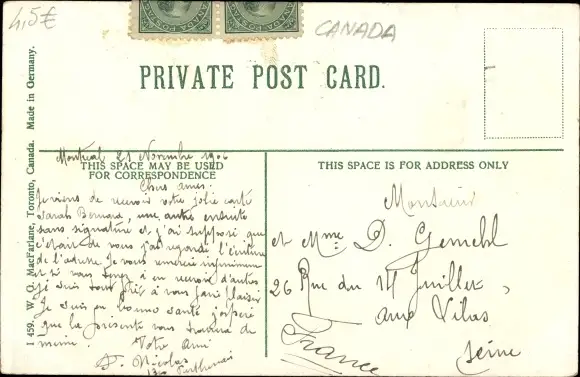 4,5€
CANADA
PRIVATE POST CARD.
I 459. W. G. MacFarlane, Toronto, Canada. Made in Germany.
THIS SPACE MAY BE USED
FOR CORRESPONDENCE
THIS SPACE IS FOR ADDRESS ONLY
Montreal 21 Novembre 1906
Chers amis:
Je viens de recevoir votre jolie carte
Sarah Bernard, une autre ensuite
sans signature et j'ai supposé que
c'était de vous j'ai regardé l'écriture
de l'adresse je vous remercie infiniment
et si vous tenez à en recevoir d'autres
je suis tout prêt à vous faire plaisir
Je suis en bonne santé j'espère
que la présente vous trouvera de
meme. Votre ami
Nicolas
Monsieur
et Mme D.
26 Rue du 14 Juillet,
aux Lilas
Seine
France